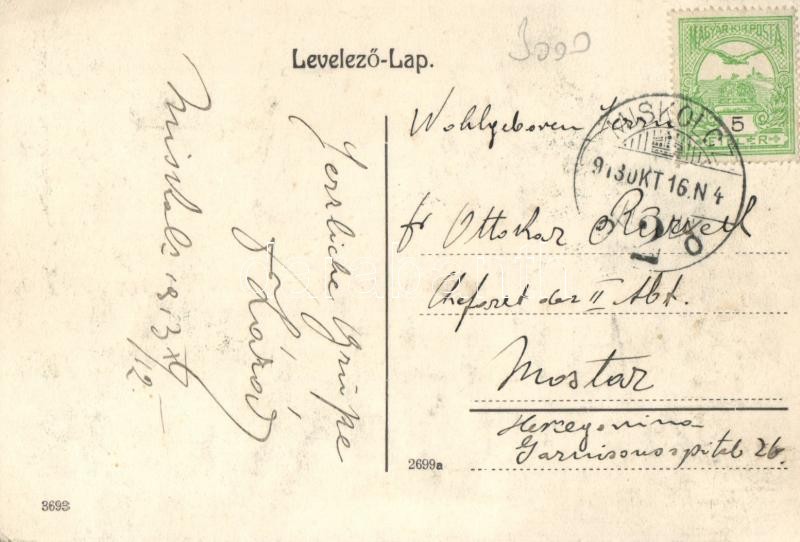 Levelező-Lap.
MAGYAR KIR. POSTA
5
FILLÉR
MISKOLC
913 OKT 16. N 4
2
Wohlgeboren Herrn
Dr Ottokar
Chefarzt der II Abt.
Mostar
Herzegovina
Garnisonsspital 26.
Herzliche Grüße
Miskolc 1913 X
/12.
2699a
3693